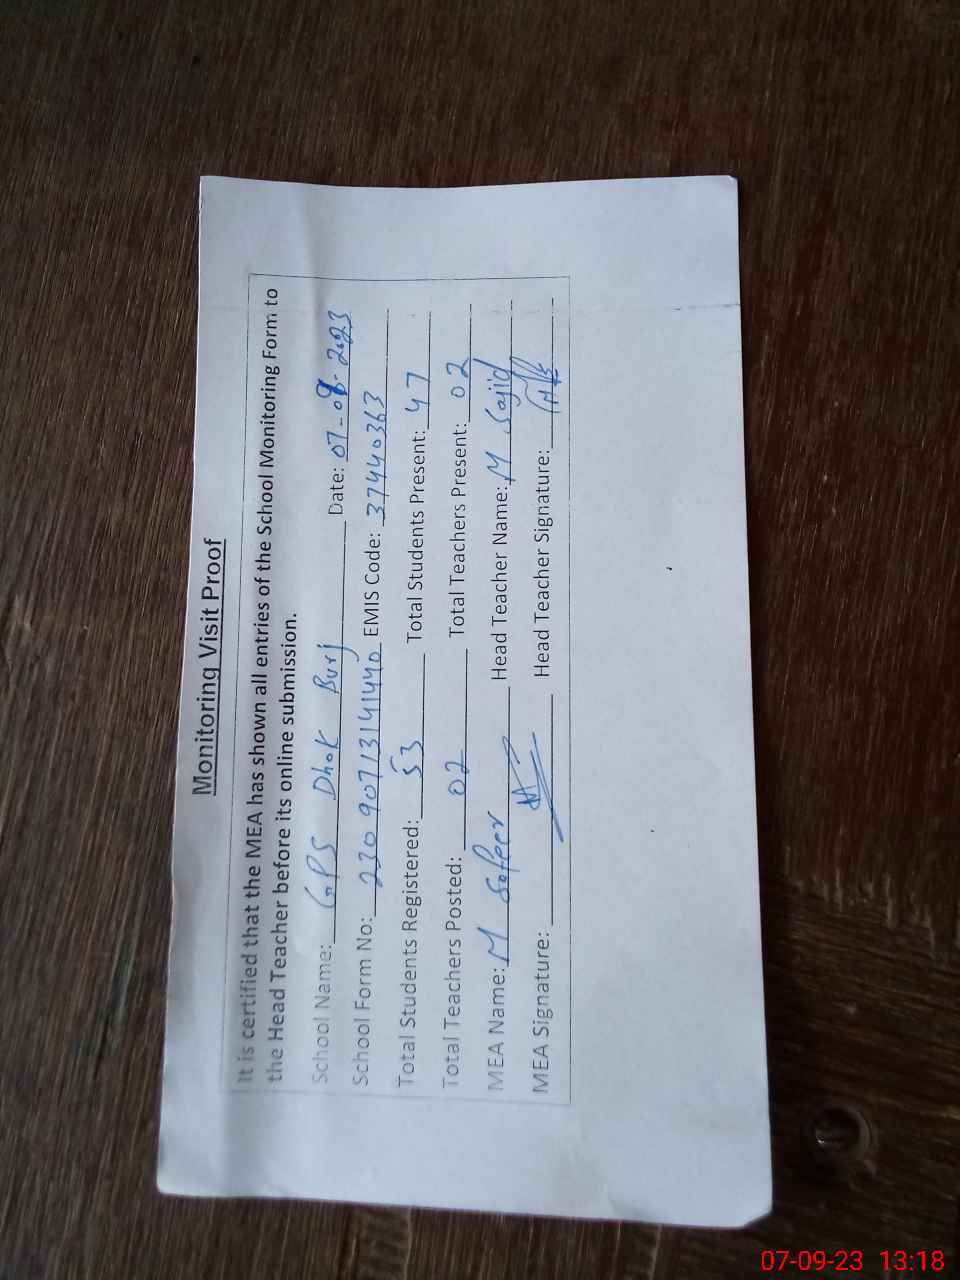 Monitoring Visit Proof
It is certified that the MEA has shown all entries of the School Monitoring Form to
the Head Teacher before its online submission.
School Name: GPS Dhok Burj Date: 07-09-2023
School Form No: 23090713141440 EMIS Code: 37440363
Total Students Registered: 53 Total Students Present: 47
Total Teachers Posted: 02 Total Teachers Present: 02
MEA Name: M Safeer Head Teacher Name: M Sajid
MEA Signature: Head Teacher Signature:
07-09-23 13:18